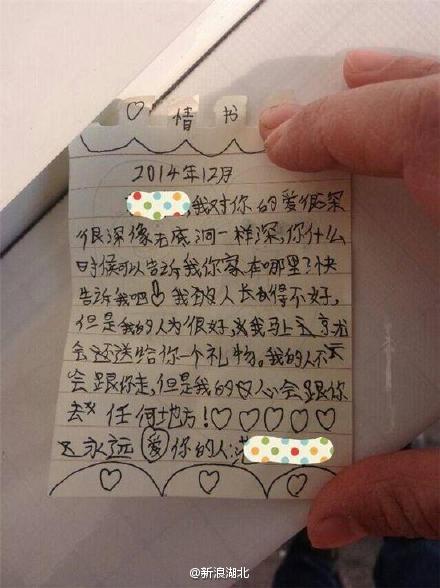 ♡ 情书
2014年12月
,我对你的爱很深
很深像无底洞一样深,你什么
时候可以告诉我你家在哪里?快
告诉我吧!我人长得不好,
但是我的人为很好,我马上
会还送给你一个礼物。我的人不
会跟你走,但是我的心会跟你
去 任何地方!♡♡♡♡♡
永远爱你的人:
@新浪湖北